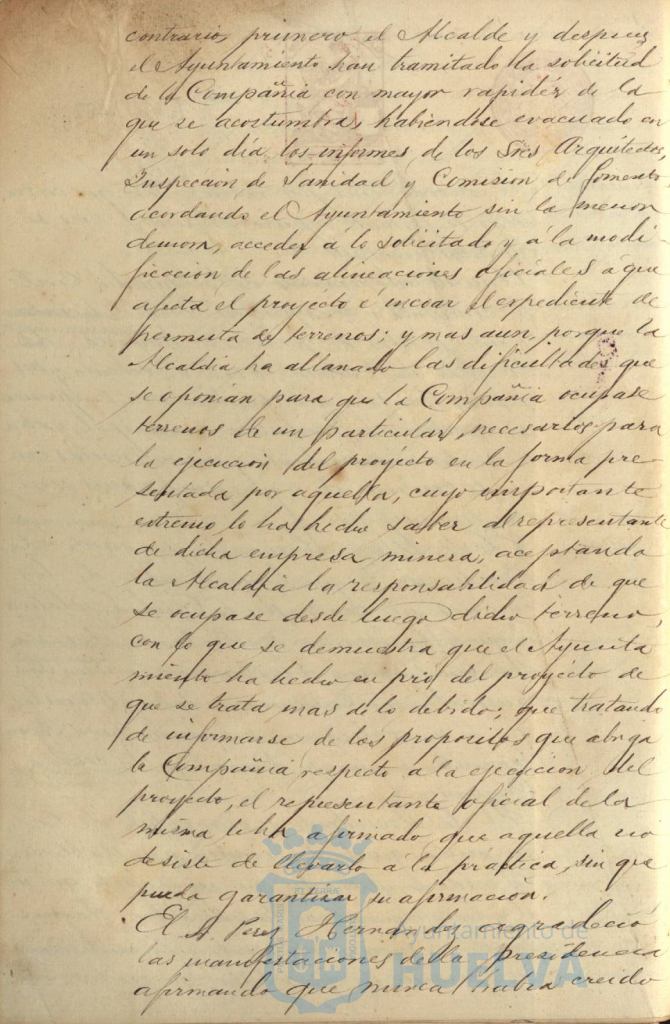 contrario, primero el Alcalde y despues
el Ayuntamiento han tramitado la solicitud
de la Compañia con mayor rapidéz de la
que se acostumbra, habiendose evacuado en
un solo dia los informes de los Sres Arquitectos,
Inspeccion de Sanidad y Comision de fomento
acordando el Ayuntamiento sin la menor
demora, acceder á lo solicitado y á la modi-
ficacion de las alineaciones oficiales á que
afecta el proyecto é incoar el expediente de
permuta de terrenos; y mas aun, porque la
Alcaldia ha allanado las dificultades que
se oponian para que la Compañia ocupase
terrenos de un particular, necesarios para
la ejecucion del proyecto en la forma pre-
sentada por aquella, cuyo importante
extremo lo ha hecho saber al representante
de dicha empresa minera, aceptando
la Alcaldia la responsabilidad de que
se ocupase desde luego dicho terreno,
con lo que se demuestra que el Ayunta
miento ha hecho en pró del proyecto de
que se trata mas de lo debido; que tratando
de informarse de los propositos que abriga
la Compañia respecto á la ejecucion del
proyecto, el representante oficial de la
misma le ha afirmado que aquella no
desiste de llevarlo á la práctica, sin que
pueda garantizar su afirmacion.
El Sr. Perez Hernandez agradeció
las manifestaciones de la presidencia
afirmando que nunca habia creido
Ayuntamiento de
HUELVA